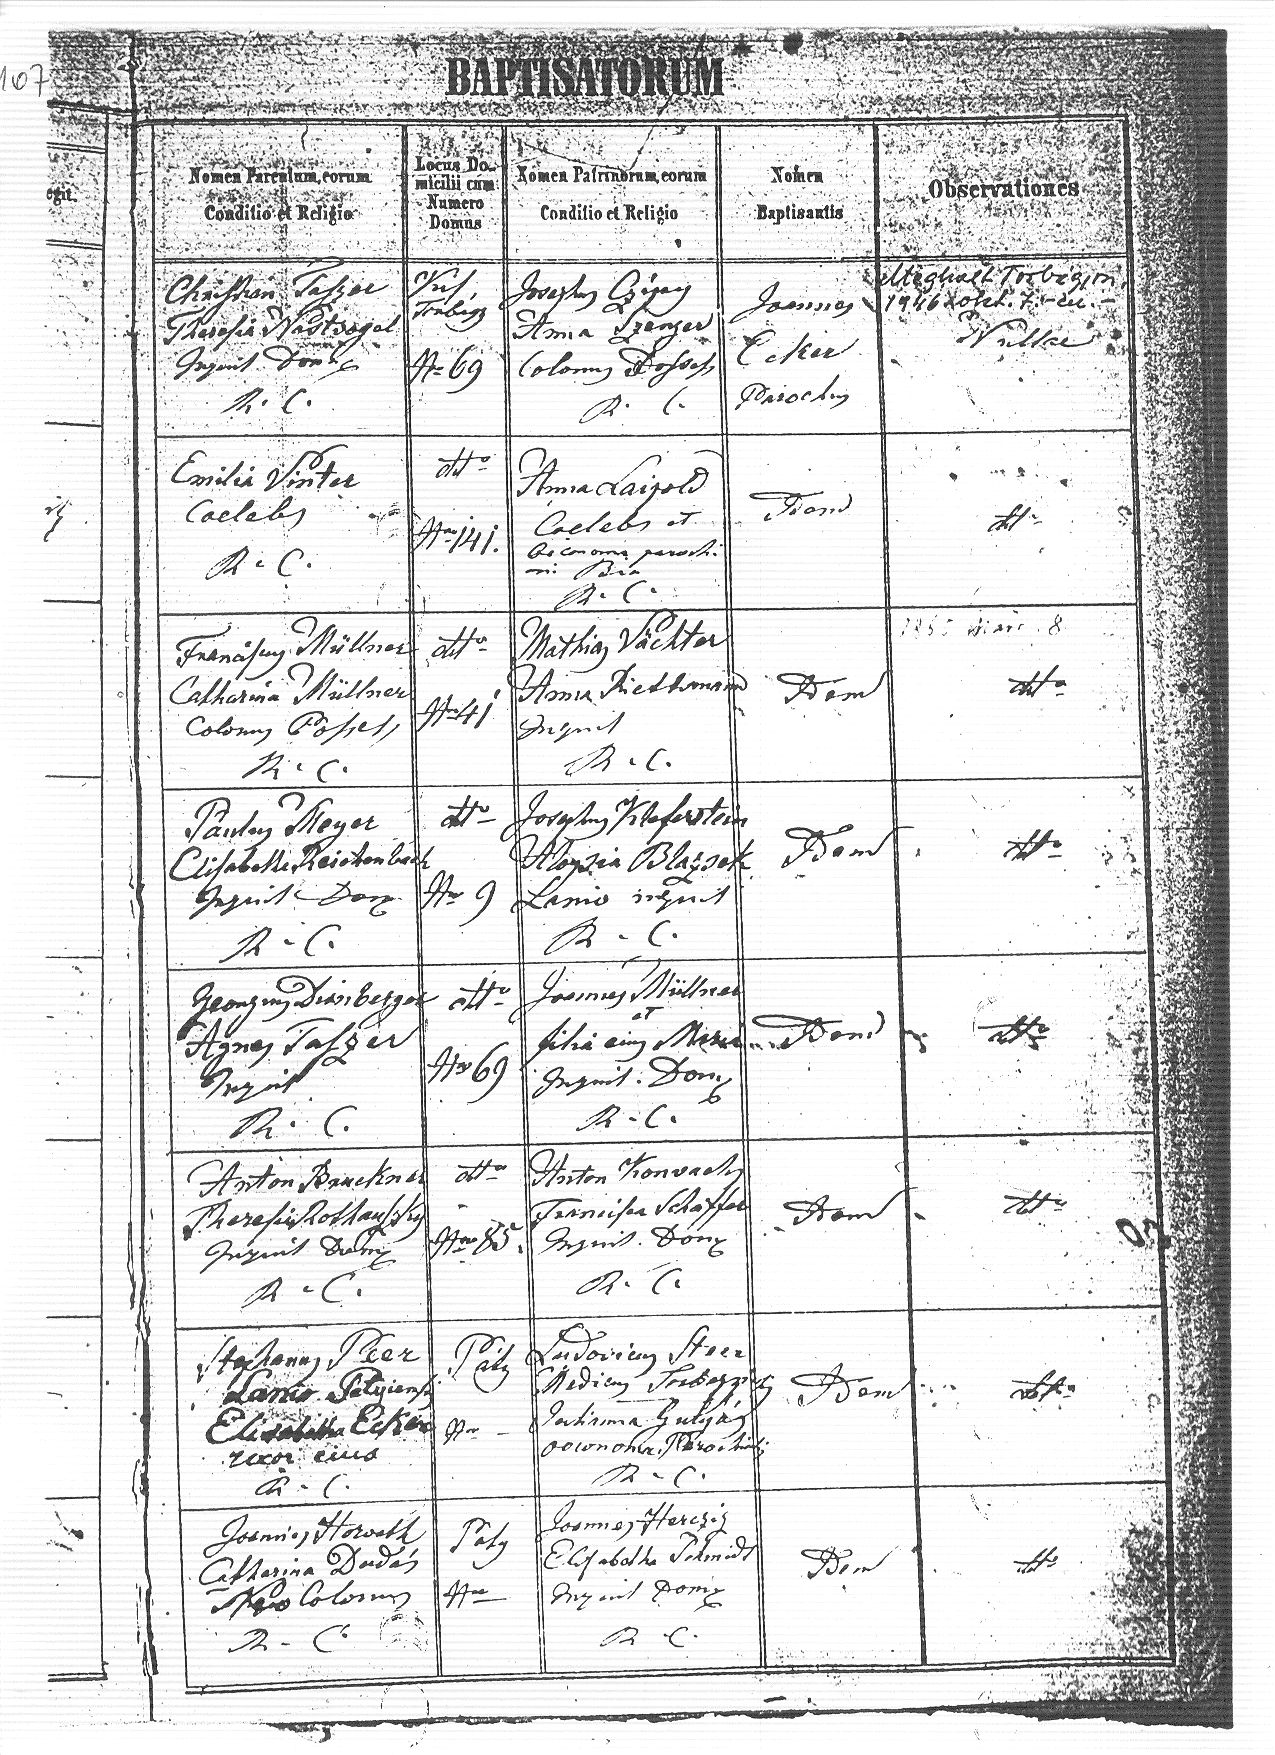 107
BAPTISATORUM
Nomen Parentum, eorum
Conditio et Religio
Locus Do-
micilii cum
Numero
Domus
Nomen Patrinorum, eorum
Conditio et Religio
Nomen
Baptisantis
Observationes
Christian Taszer
Theresia
Inquil Dom
R. C.
Torbágy
No 69
Josephus Czigany
Anna Szenger
Colonus Possess
R. C.
Joannes
Ecker
Parochus
Meghalt Törbágyon,
1946 okt. 7.-én.-
Emilia Vinter
Caelebs
R. C.
dtto
No 141.
Anna Laipold
Caelebs et
Oeconoma parochi
Bia
R. C.
Idem
dtto
Franciscus Müllner
Catharina Müllner
Colonus Possess
R. C.
dtto
No 41
Mathias Vächter
Anna
Inquil
R. C.
Idem
8
dtto
Paulus Meyer
Elisabetha Reichenbach
Inquil Dom
R. C.
dtto
No 9
Josephus Kleferstein
Aloysia Blazsek
Lanio inquil
R. C.
Idem
dtto
Georgius Dirnberger
Agnes Taszer
Inquil
R. C.
dtto
No 69
Joannes Müllner
et
filia eius Maria
Inquil. Dom
R. C.
Idem
dtto
Anton Bruckner
Theresia
Inquil Dom
R. C.
dtto
No 85.
Anton
Francisca Schäffer
Inquil. Dom
R. C.
Idem
dtto
Stephanus Peer
Lanio Patyiensis
Elisabetha Ecker
uxor eius
R. C.
Páty
No -
Ludovicus Steer
Medicus
Gulyás
oeconoma Parochi
R. C.
Idem
dtto
Joannes Horvath
Catharina Dudás
Colonus
R. C.
Páty
No
Joannes Herczig
Elisabetha Schmidt
Inquil Dom
R. C.
Idem
dtto